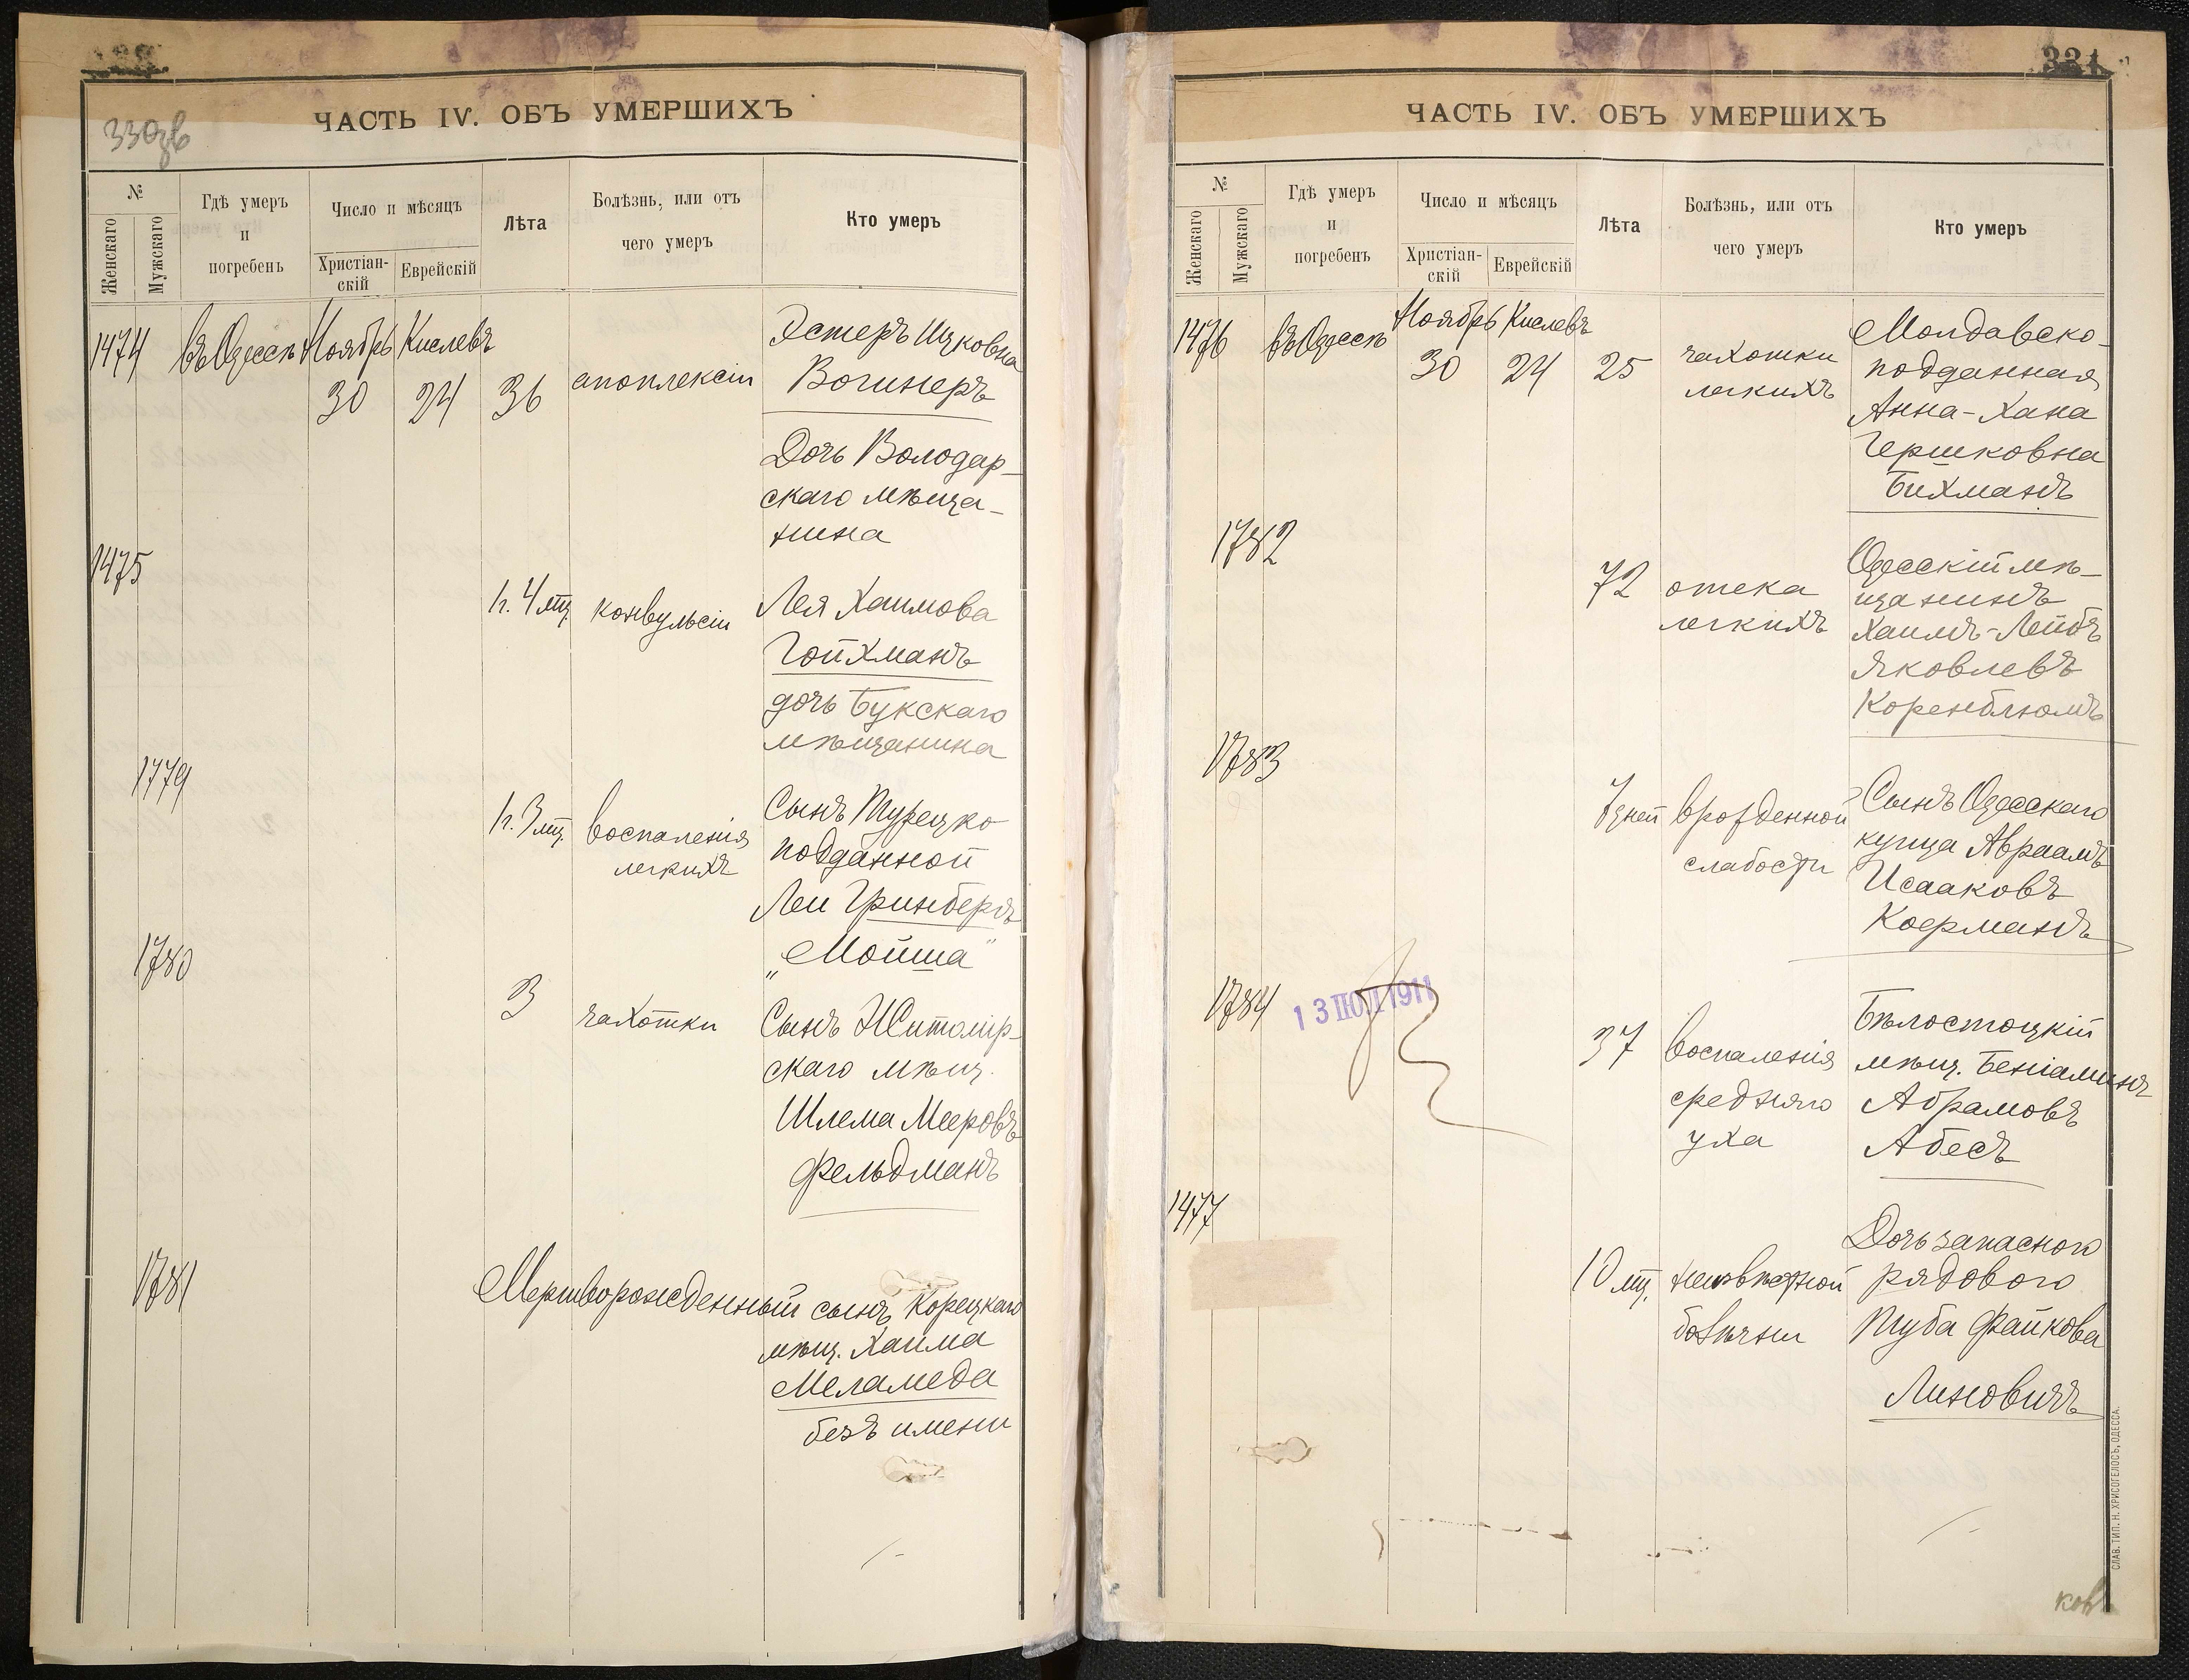 330зв
ЧАСТЬ IV. ОБЪ УМЕРШИХЪ
№
Женскаго
Мужскаго
Гдѣ умеръ
и
погребенъ
Число и мѣсяцъ
Христіан-
скій
Еврейскій
Лѣта
Болѣзнь, или отъ
чего умеръ
Кто умеръ
1474 въ Одессѣ Ноябрь Кислевъ Эстеръ Ицковна
30 24 36 апоплексіи Вогинеръ
Дочь Володар-
скаго мѣща-
нина
1475
1г. 4 мц. конвульсіи Лея Хаимова
Гойхманъ
дочь Букскаго
мѣщанина
1779
1г. 3 мц. воспаленія Сынъ Турецко
легкихъ подданной
Леи Гринбергъ
„Мойша“
1780
3 чахотки Сынъ Житомір-
скаго мѣщ.
Шлема Мееровъ
Фельдманъ
1781
Мертворожденный сынъ Корецкаго
мѣщ. Хаима
Меламеда
безъ имени
331
ЧАСТЬ IV. ОБЪ УМЕРШИХЪ
№
Женскаго
Мужскаго
Гдѣ умеръ
и
погребенъ
Число и мѣсяцъ
Христіан-
скій
Еврейскій
Лѣта
Болѣзнь, или отъ
чего умеръ
Кто умеръ
1476 въ Одессѣ Ноябрь Кислевъ Молдавско-
30 24 25 чахотки подданная
легкихъ Анна-Хана
Гершковна
Бихманъ
1782
72 отека Одесскій мѣ-
легкихъ щанинъ
Хаимъ-Лейбъ
Яковлевъ
Коренблюмъ
1783
7 дней врожденной Сынъ Одесскаго
слабости купца Авраамъ
Исааковъ
Коерманъ
1784
13 ІЮЛ 1911
37 воспаленія Бѣлостоцкій
средняго мѣщ. Беніаминъ
уха Абрамовъ
Абесъ
1477
Дочь запаснаго
10 мц. неизвѣстной рядового
болѣзни Туба Файкова
Линовичъ
СЛАВ. ТИП. Н. ХРИСОГЕЛОСЪ, ОДЕССА.